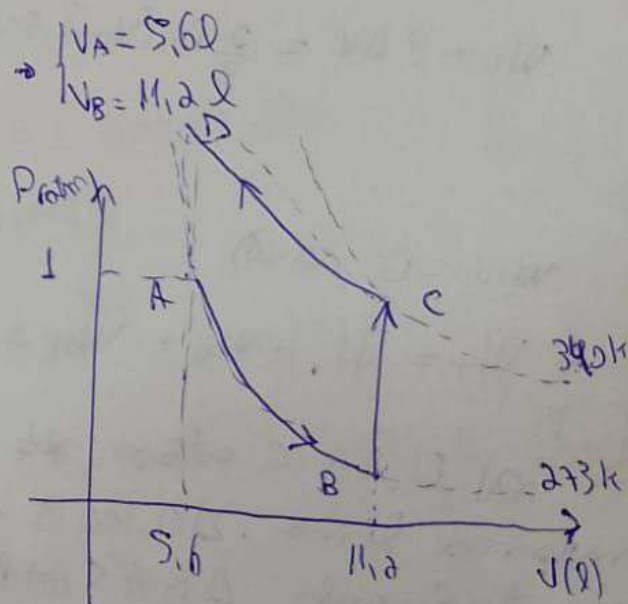 → { V_A = 5,6 l
V_B = 11,2 l
D
P(atm)
1
A
C
B
273 k
5,6
11,2
V(l)